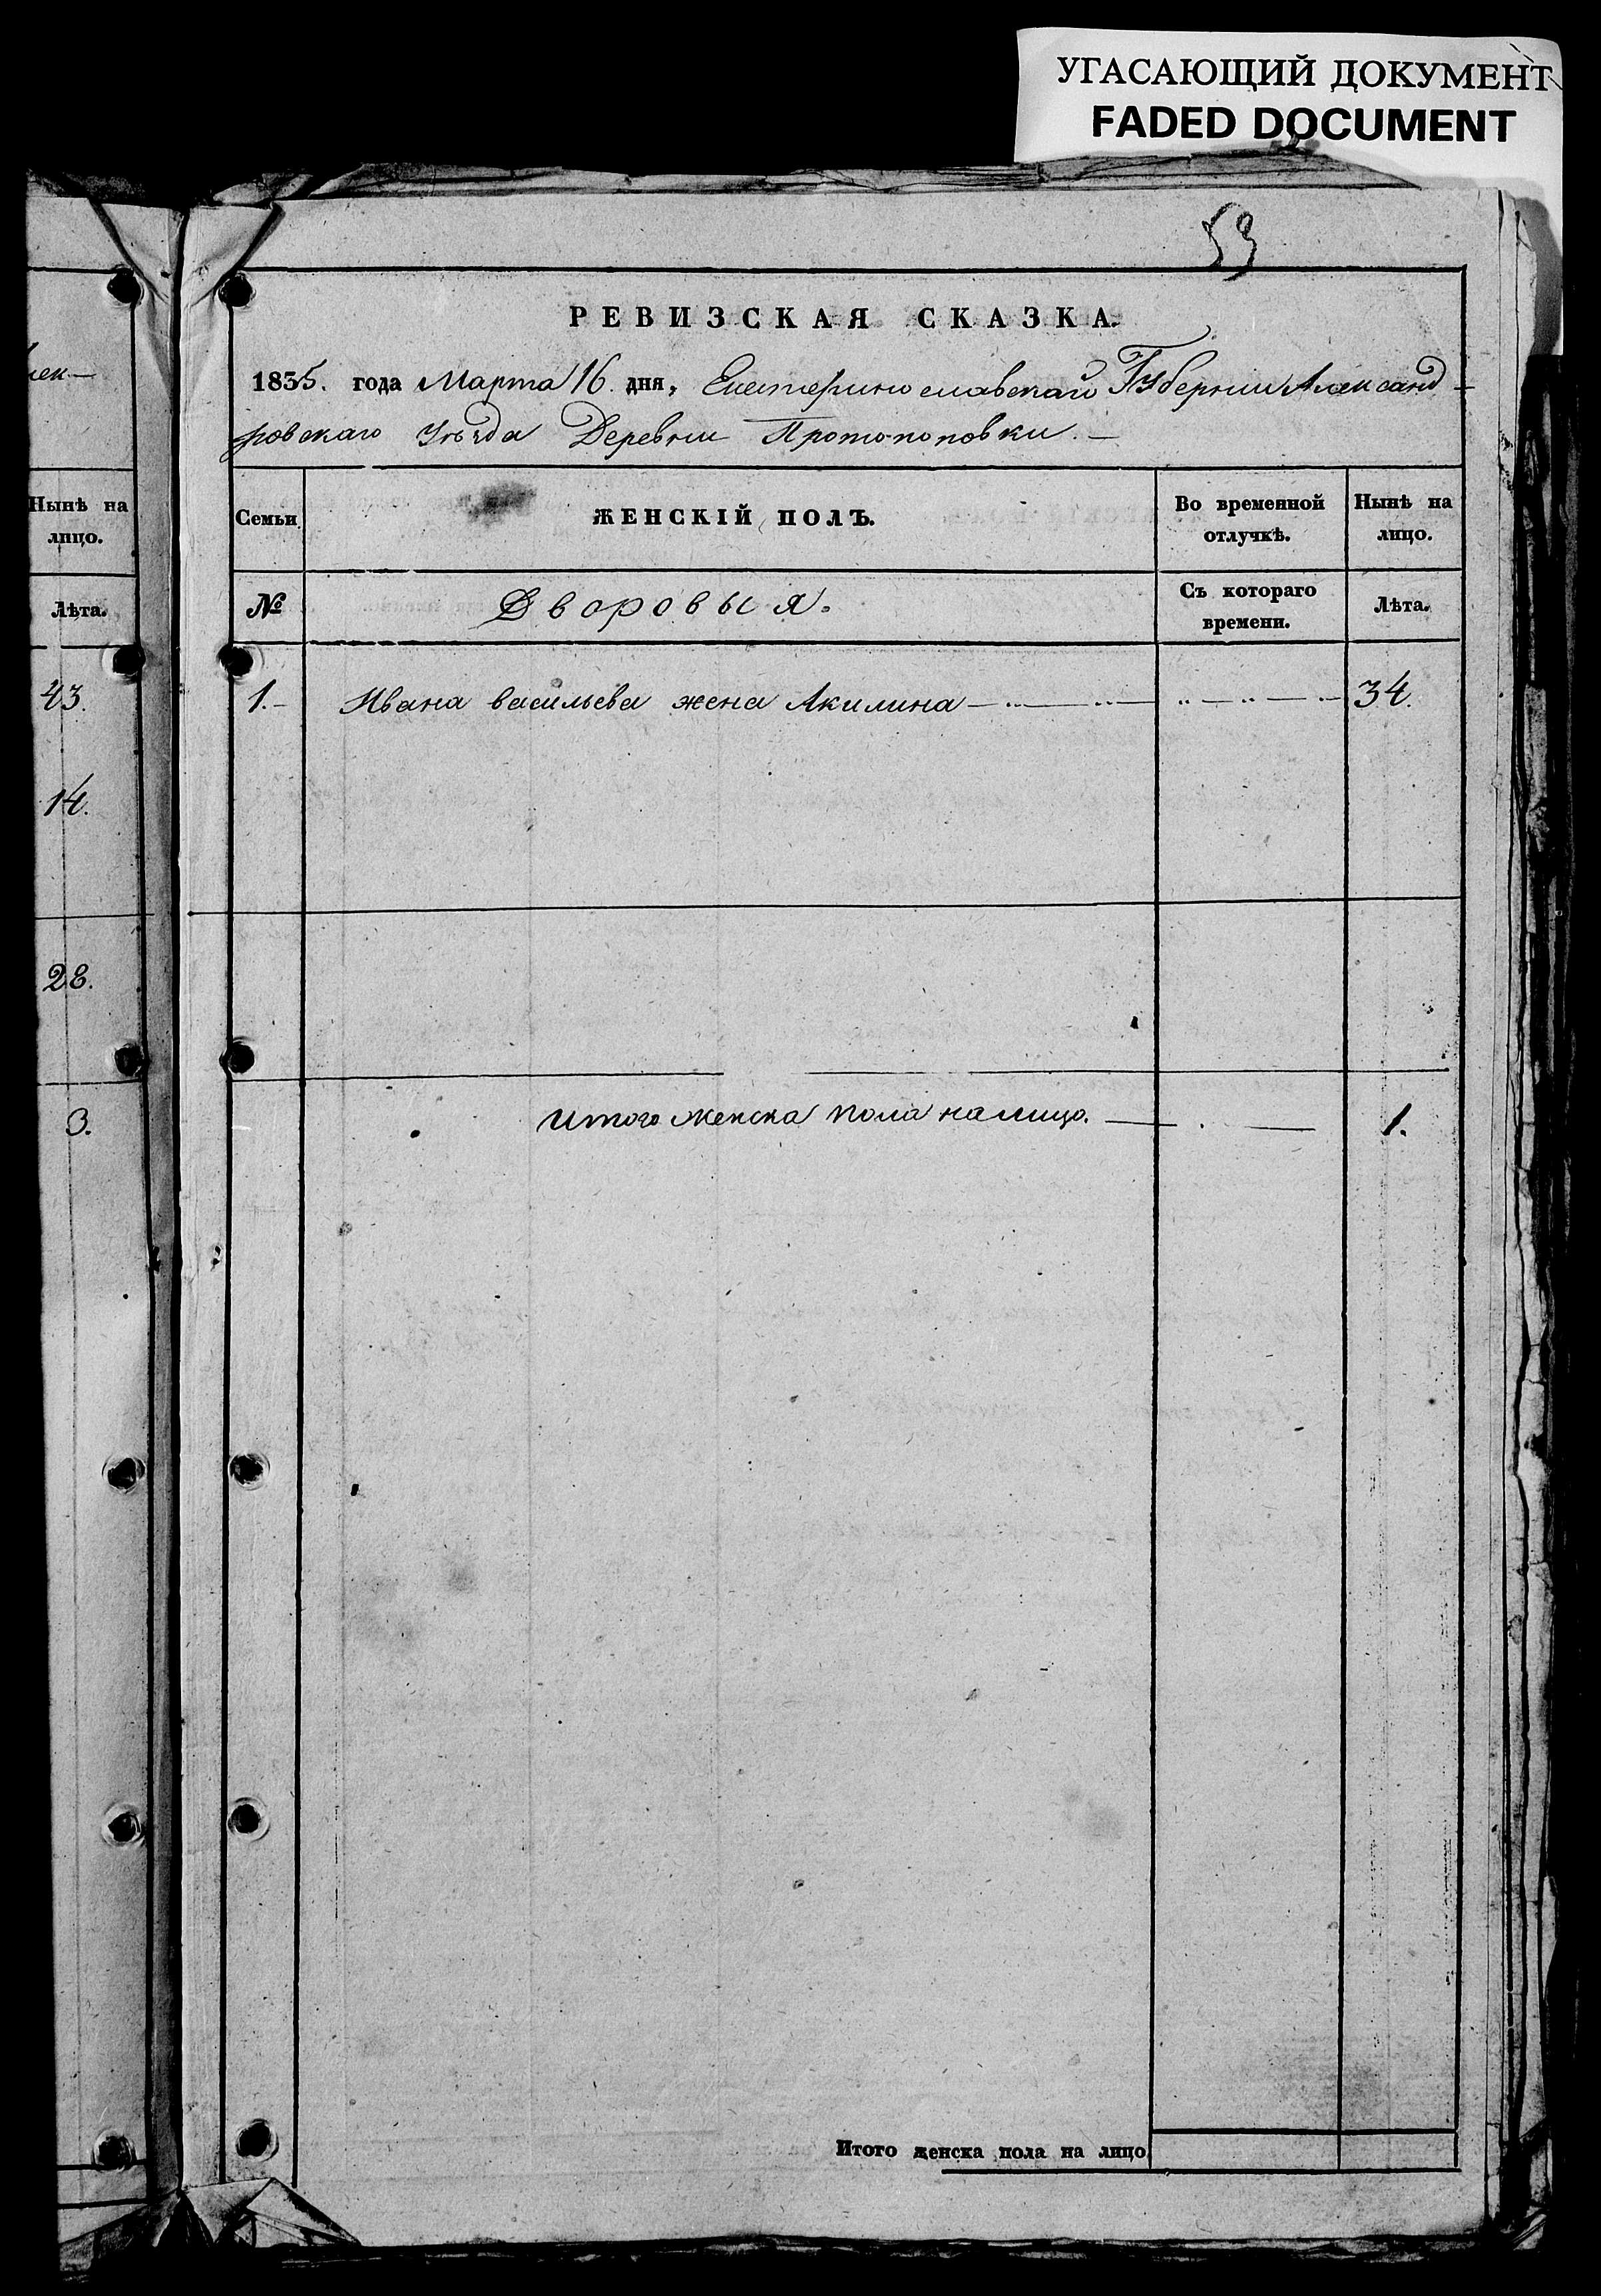 УГАСАЮЩИЙ ДОКУМЕНТ
FADED DOCUMENT
53
РЕВИЗСКАЯ СКАЗКА.
1835. года Марта 16. дня, Екатеринославской Губернии Александ-
ровскаго Уѣзда Деревни Протопоповки. —
Семьи
ЖЕНСКІЙ ПОЛЪ.
Во временной
отлучкѣ.
Нынѣ на
лицо.
№
Дворовыя.
Съ котораго
времени.
Лѣта.
1. Ивана васильева жена Акилина 34.
Итого женска пола налицо. 1.
Итого женска пола на лицо
лек—
Нынѣ на
лицо.
Лѣта.
43.
14.
28.
3.